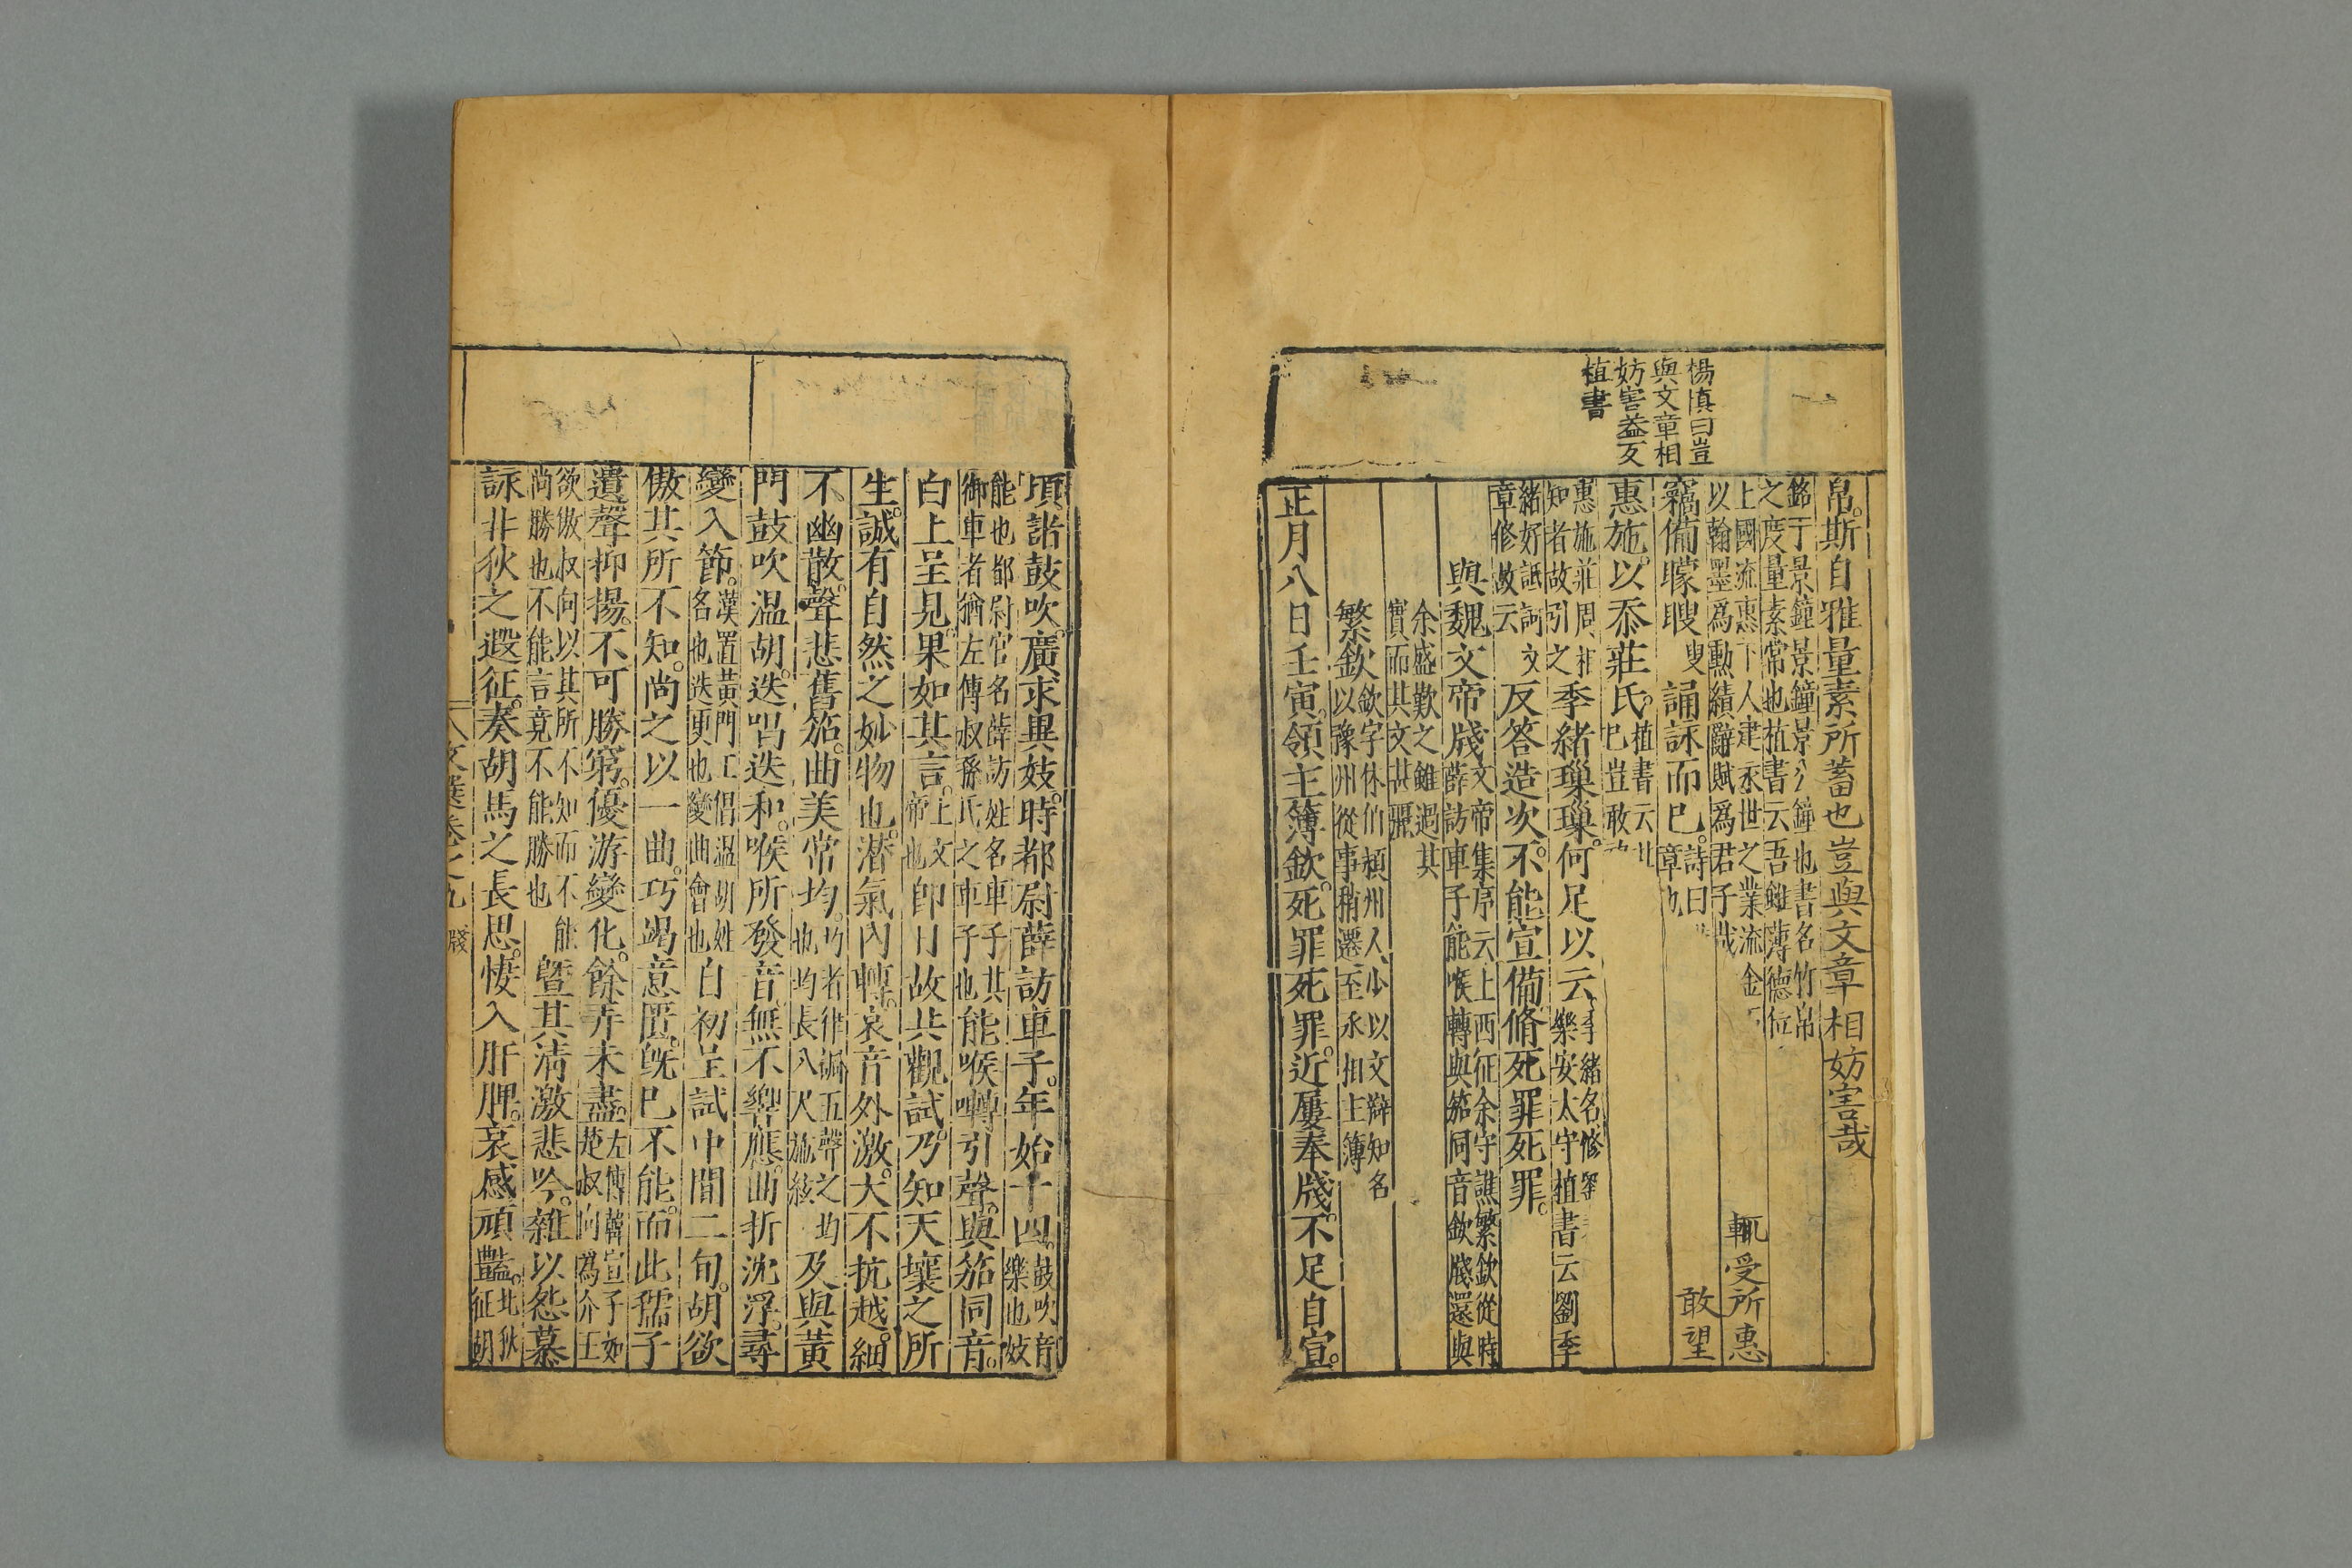 楊慎曰豈
與文章相
妨害益反
植書
帛。斯自雅量素所蓄也豈與文章相妨害哉
銘于景鐘景鐘景公鐘也書名竹帛
之度量素常也植書云吾雖薄德位
輒受所惠
上國流惠下人建永世之業流金
以翰墨爲勳績辭賦爲君子哉
竊備矇瞍
叟
誦詠而已。
詩曰
章也
敢望
惠施。以忝莊氏。
植書云
巳豈敢
惠施莊周相
知者故引之
季緒瑣瑣。何足以云
季緒名修
樂安太守植書云劉季
緒好詆訶文
章修故云
反答造次。不能宣備脩死罪死罪。
與魏文帝牋
文帝集序云上西征余守譙繁欽從時
薛訪車子能喉轉與笳同音欽牋還與
余盛歎之雖過其
實而其文甚麗
繁欽
欽字休伯潁州人少以文辯知名
以豫州從事稍遷至丞相主簿
正月八日壬寅。領主簿欽。死罪死罪。近屢奉牋。不足自宣。
頃諸鼓吹。廣求異妓。時都尉薛訪車子。年始十四。
鼓吹音
樂也妓
能也都尉官名薛訪姓名車子其
御車者猶左傳叔孫氏之車子也
能喉囀引聲。與笳同音。
白上呈見。果如其言。
上文
帝也
即日故共觀試。乃知天壤之所
生。誠有自然之妙物也。潛氣內轉。哀音外激。大不抗越。細
不幽散。聲悲舊笳。曲美常均。
均者律調五聲之均
也均長八尺施絃
及與黃
門鼓吹温胡。迭唱迭和。喉所發音。無不響應。曲折沈浮。尋
變入節。
漢置黃門工倡温胡姓
名也迭更也變曲會也
自初呈試中間二旬。胡欲
傲其所不知。尚之以一曲。巧竭意匱。既已不能。而此孺子
遺聲抑揚。不可勝窮。優游變化。餘弄未盡。
左傳韓宣子如
楚叔向爲介王
欲傲叔向以其所不知而不能
尚勝也不能言竟不能勝也
暨其清激悲吟。雜以怨慕
詠北狄之遐征。奏胡馬之長思。悽入肝脾。哀感頑豔。
北狄
征胡
文選卷之九
牋